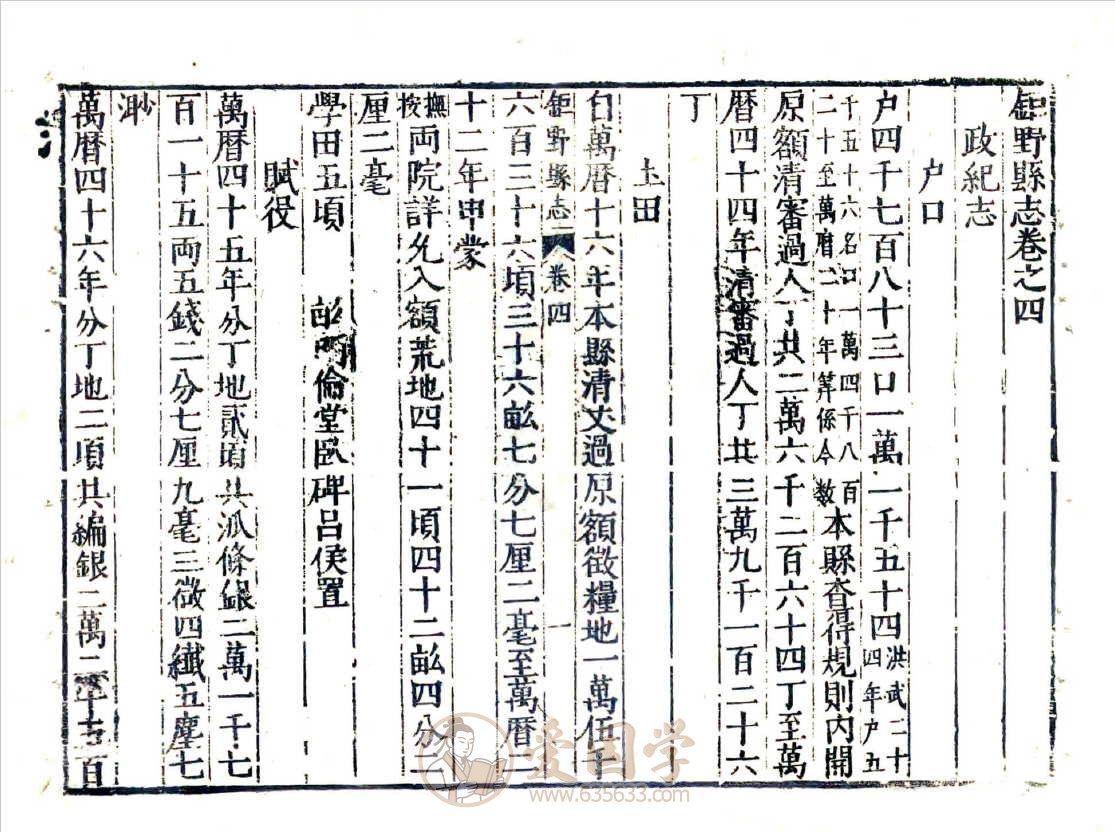 鉅野縣志卷之四
政紀志
户口
户四千七百八十三口一萬一千五十四洪武二十四年户五
千五十六名口一萬四千八百二十至萬曆二十年筭係今數本縣查得規則内開
原額清審過人丁共二萬六千二百六十四丁至萬
曆四十四年清審過人丁共三萬九千一百二十六
丁
土田
自萬曆十六年本縣清丈過原額徵糧地一萬伍千
鉅野縣志 卷四 一
六百三十六頃三十六畝七分七厘二毫至萬曆二
十二年申蒙
撫按兩院詳允入額荒地四十一頃四十二畝四分二
厘二毫
學田五頃 畝明倫堂卧碑吕侯置
賦役
萬曆四十五年分丁地貳項共派條銀二萬一千七
百一十五兩五錢二分七厘九毫三微四纖五塵七
渺
萬曆四十六年分丁地二項共編銀二萬二千七百
爱国学
www.635633.com